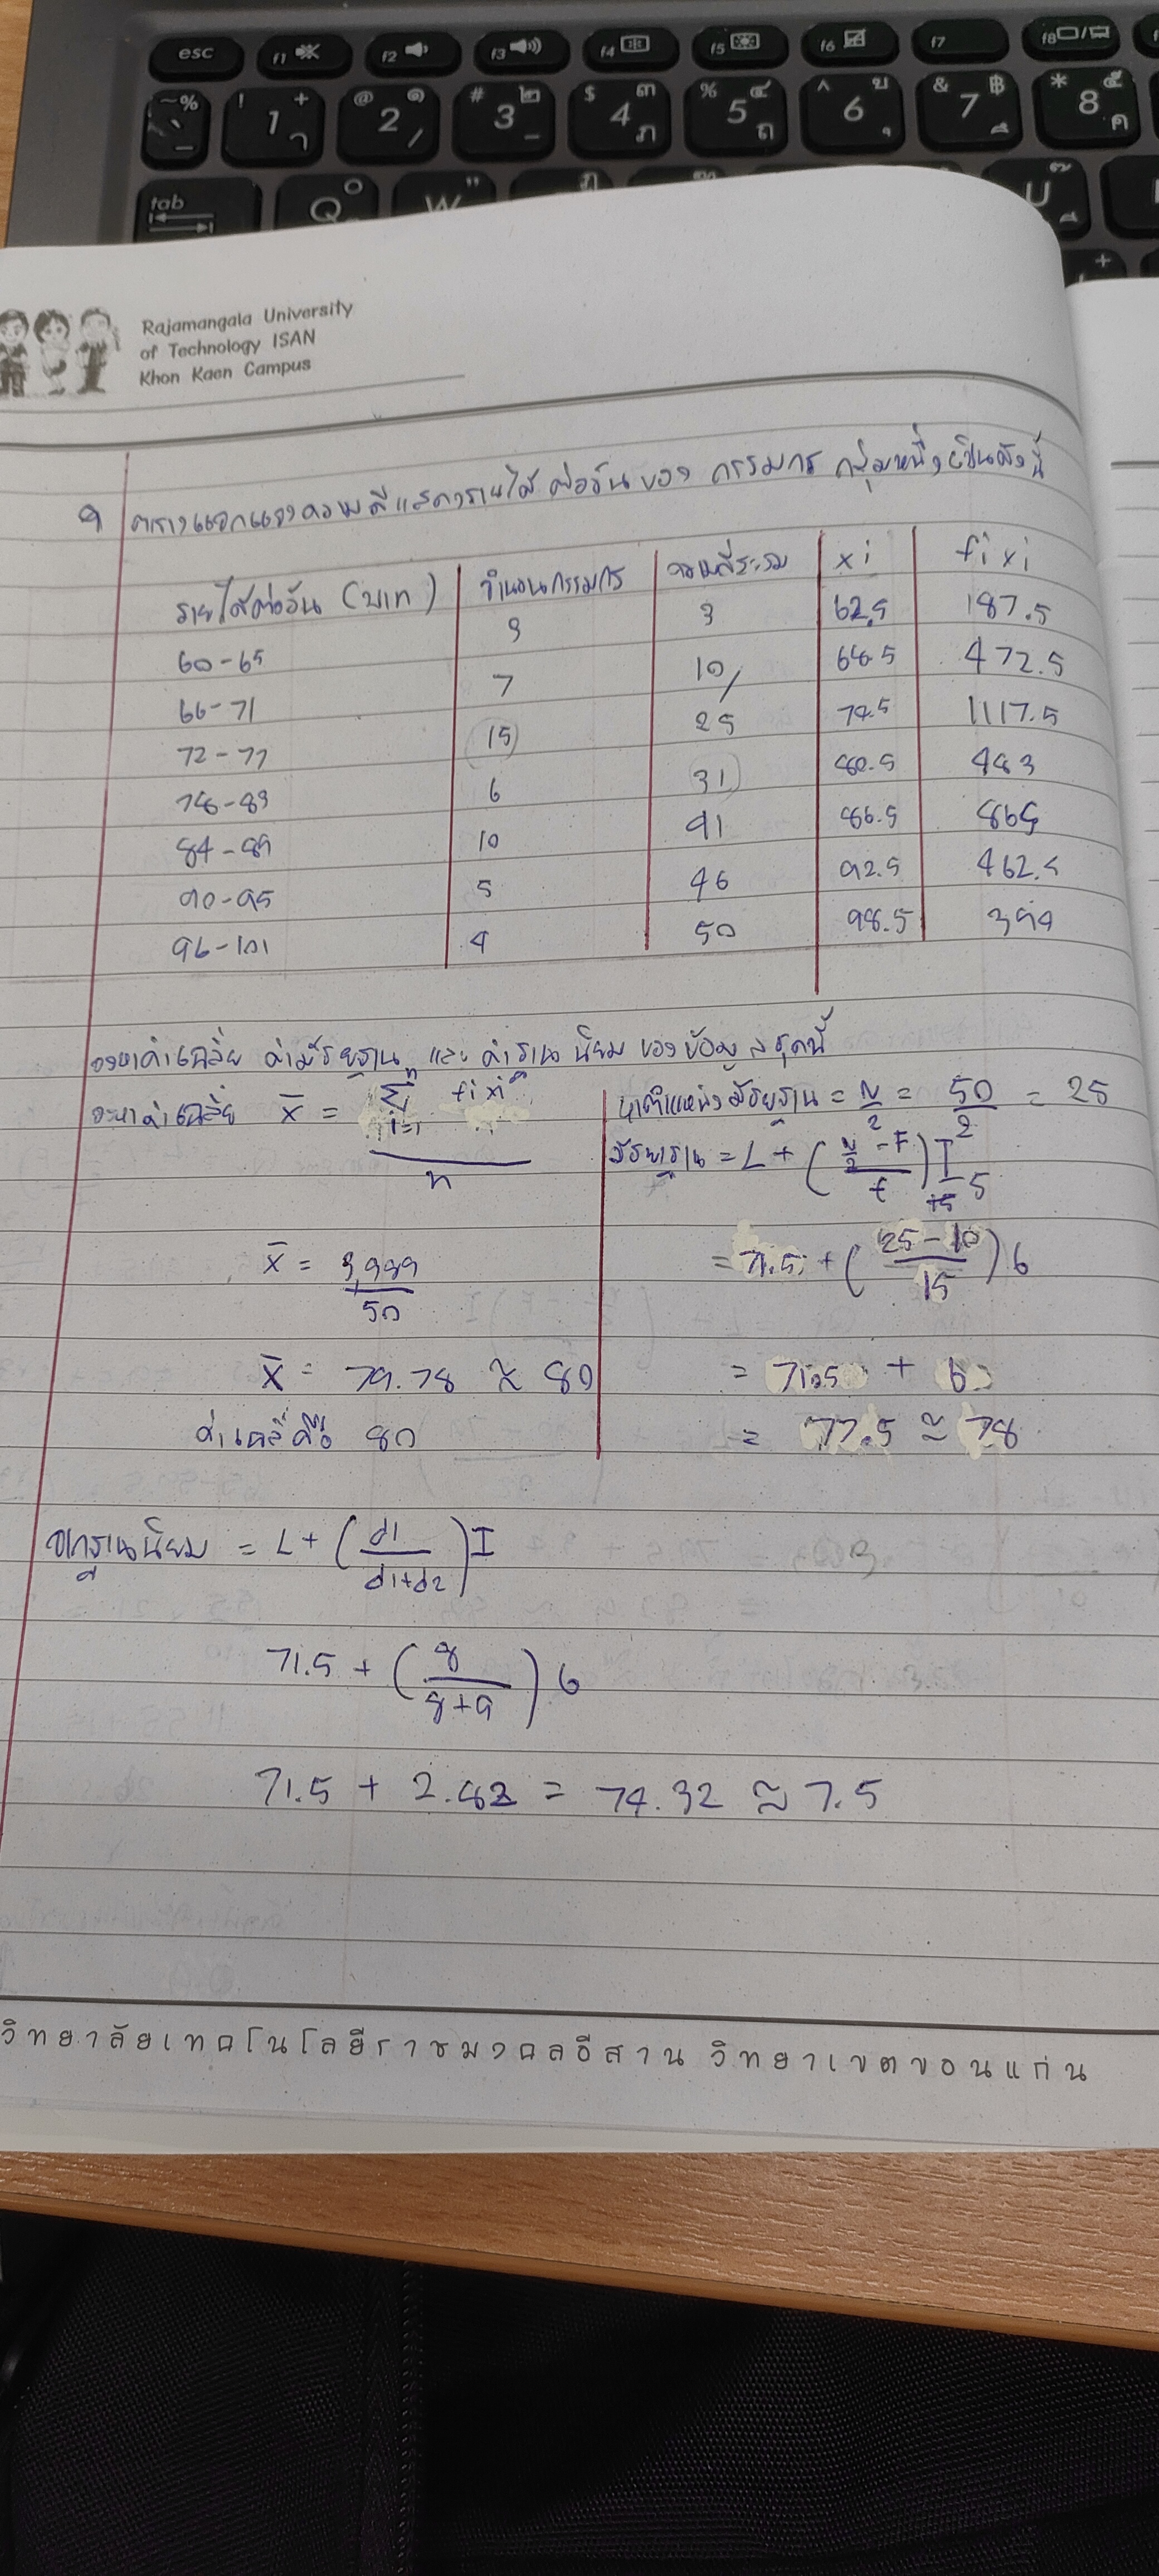 esc f1 f2 f3 f4 f5 f6 f7 f8
~ % ` _ ! + 1 ๅ @ ๑ 2 / # ๒ 3 - $ ๓ 4 ภ % ๔ 5 ถ ^ ู 6 ุ & ฿ 7 ึ * ๕ 8 ค
tab Q ๐ W " ฎ U
Rajamangala University
of Technology ISAN
Khon Kaen Campus
ตารางแจกแจงความถี่แสดงรายได้ต่อวันของ กรรมกร กลุ่มหนึ่งเป็นดังนี้
รายได้ต่อวัน (บาท) จำนวนกรรมกร ความถี่สะสม xi fixi
60-65 3 3 62.5 187.5
66-71 7 10 68.5 472.5
72-77 15 25 74.5 1117.5
78-83 6 31 80.5 483
84-89 10 41 86.5 865
90-95 5 46 92.5 462.5
96-101 4 50 98.5 394
จงหาค่าเฉลี่ย ค่ามัธยฐาน และ ค่าฐานนิยม ของข้อมูลชุดนี้
จะหาค่าเฉลี่ย x̄ = Σ fixi
i=1
n
หาตำแหน่งมัธยฐาน = N/2 = 50/2 = 25
มัธยฐาน = L + ((N/2 - F)/f) I
x̄ = 3,989/50
= 71.5 + ((25-10)/15) 6
x̄ = 79.78 ≈ 80
= 71.5 + 6
ค่าเฉลี่คือ 80
= 77.5 ≈ 78
จากฐานนิยม = L + (d1/(d1+d2)) I
71.5 + (8/(8+9)) 6
71.5 + 2.82 = 74.32 ≈ 7.5
วิทยาลัยเทคโนโลยีราชมงคลอีสาน วิทยาเขตขอนแก่น